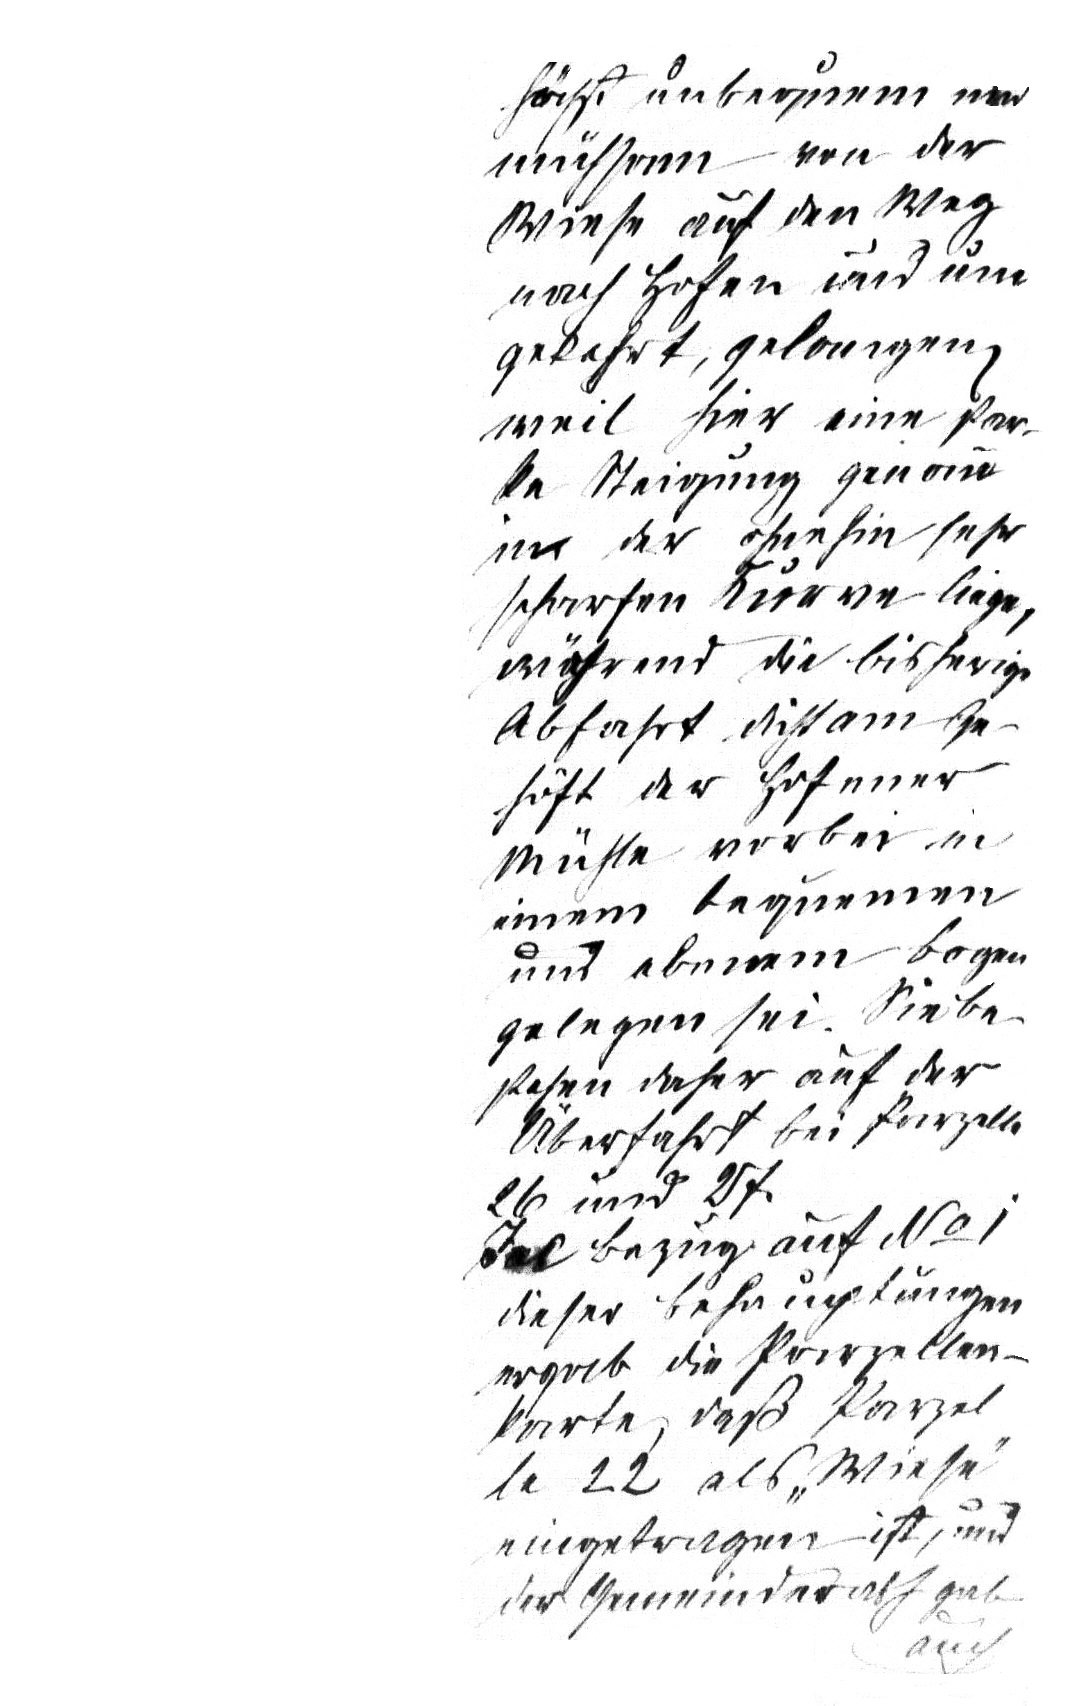 höchst unbequem und
mühsam von der
Wiese auf den Weg
nach Hofen und um
gekehrt, gelangen,
weil hier eine star-
ke Steigung genau
in der ohnehin sehr
scharfen Kurve liege,
während die bisherige
Abfahrt dicht am Ge-
höft der Hofener
Mühle vorbei in
einem bequemen
und ebenem bogen
gelegen sei. Sie be
stehen daher auf der
Überfahrt bei Parzelle
26 und
In bezug auf No 1
dieser behauptungen
ergab die Parzellen-
karte, daß Parzel
le 22 als „Wiese"
eingetragen ist, und
der Gemeinderath gab
auch